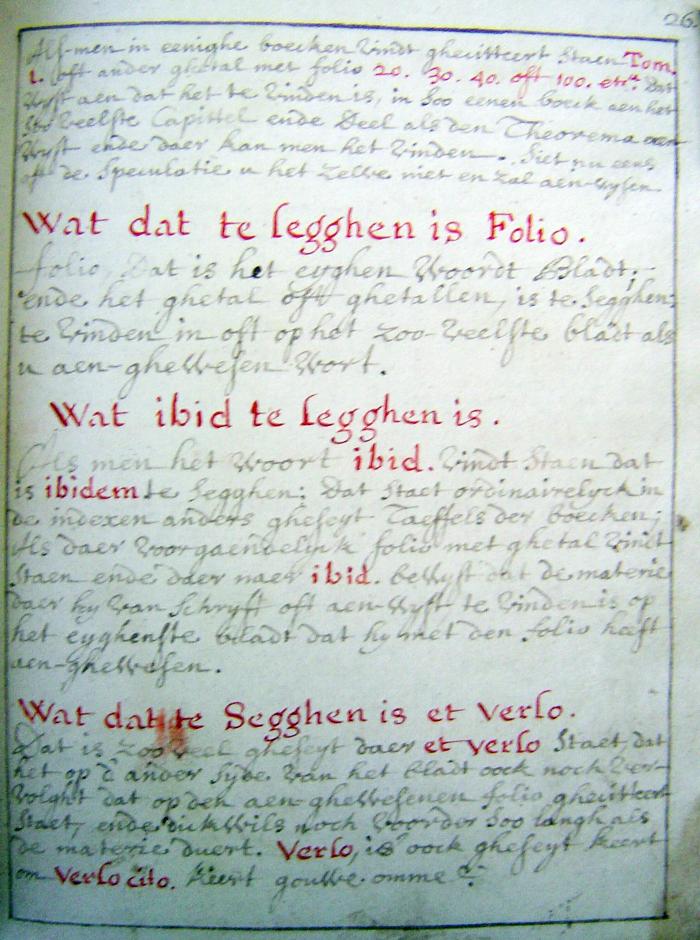 26.
Als-men in eenighe boecken vindt gheciteert staen Tom.
1. oft ander ghetal met folio 20. 30. 40. oft 100. etc. Dat
wyst aen dat het te vinden is, in soo eenen boeck aen het
soo veelste Capittel ende Deel als den Theorema aen
wyst ende daer kan men het vinden. Siet nu eens
oft de speculatie u het zelve niet en zal aen-wysen
Wat dat te segghen is Folio.
folio, Dat is het eyghen Woordt Bladt;
ende het ghetal oft ghetallen, is te segghen;
te vinden in oft op het zoo-veelste bladt als
u aen-ghewesen wort.
Wat ibid te segghen is.
Als men het woort ibid. vindt staen dat
is ibidem te segghen; Dat staet ordinairelyck in
de indexen anders gheseyt Taeffels der boecken;
Als daer voorgaendelyck folio met ghetal vindt
staen ende daer naer ibid. bewyst dat de materie
daer hy van schryft oft aen-wyst te vinden is op
het eyghenste bladt dat hy met den folio heeft
aen-ghewesen.
Wat dat te Segghen is et verso.
Dat is zoo veel gheseyt daer et verso staet, dat
het op d'ander syde van het bladt oock noch ver-
volght dat op den aen-ghewesenen folio gheciteert
staet, ende dickwils noch voorder soo langh als
de materie duert. Verso, is oock gheseyt keert
om Verso cito. keert gouwe omme